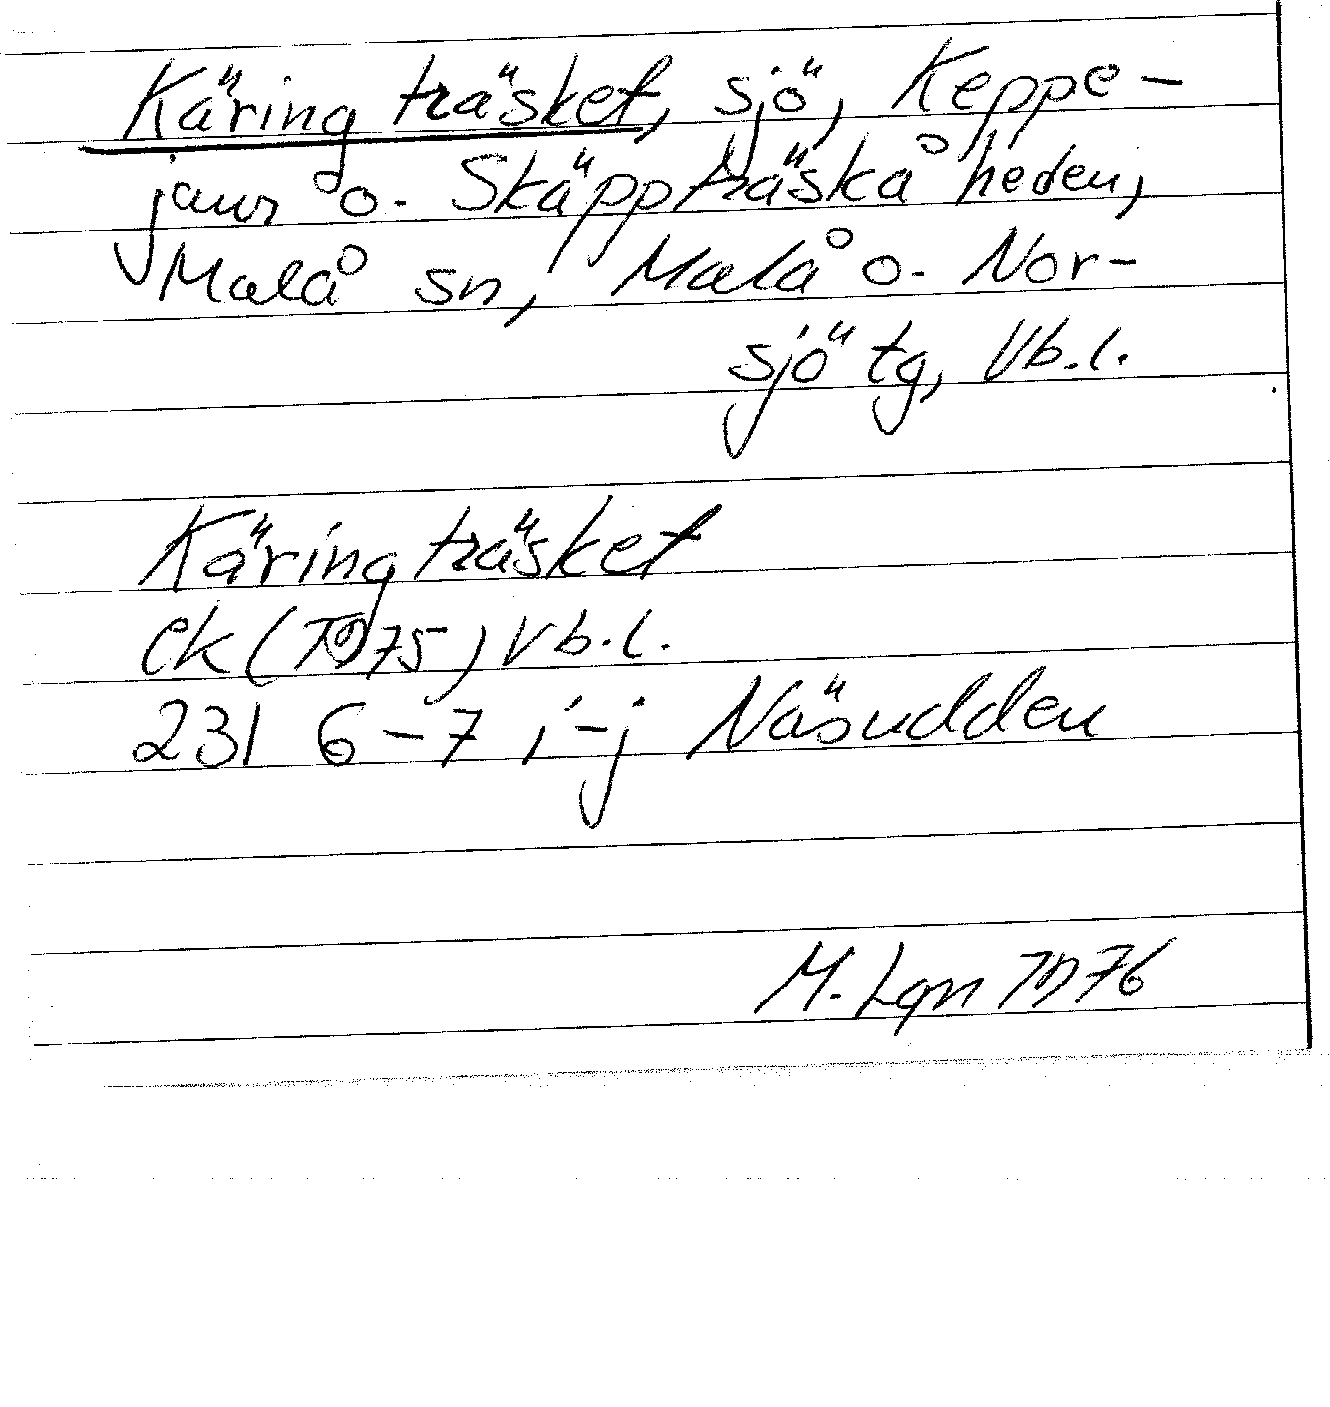 Käringträsket, sjö, Keppe-
jaur o. Skäppträskåheden,
Malå sn, Malå o. Nor-
sjö tg, Vb.l.
Käringträsket
ek (1975) Vb.l.
231 6-7 i-j Näsudden
M. Lgn 1976